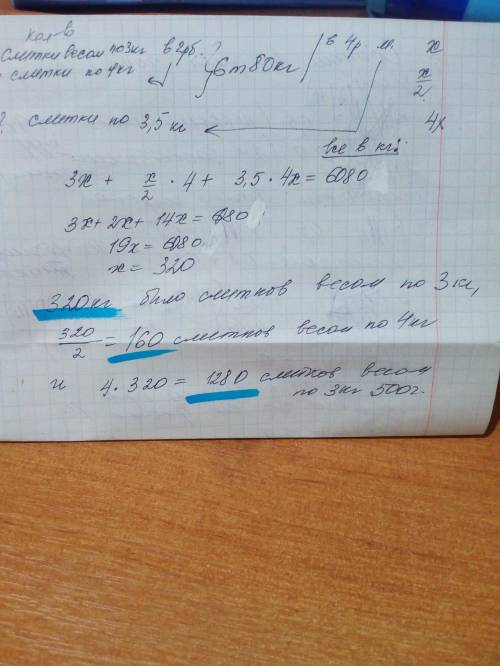 кол-во
слитки весом по 3кг в 2рб.?
слитки по 4кг
6т80кг
в 4р м.
x
x/2
4x
? слитки по 3,5 кг
все в кг:
3x + x/2 · 4 + 3,5 · 4x = 6080
3x + 2x + 14x = 6080
19x = 6080
x = 320
320кг было слитков весом по 3кг,
320/2 = 160 слитков весом по 4кг
и 4 · 320 = 1280 слитков весом
по 3кг 500г.